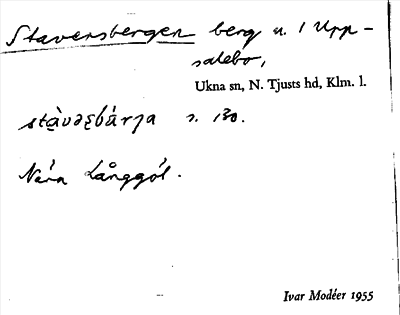 Staversbergen berg u. / Upp-
salebo,
Ukna sn, N. Tjusts hd, Klm. l.
stàvəʂbárja s. 130.
Nära Långgöl.
Ivar Modéer 1955